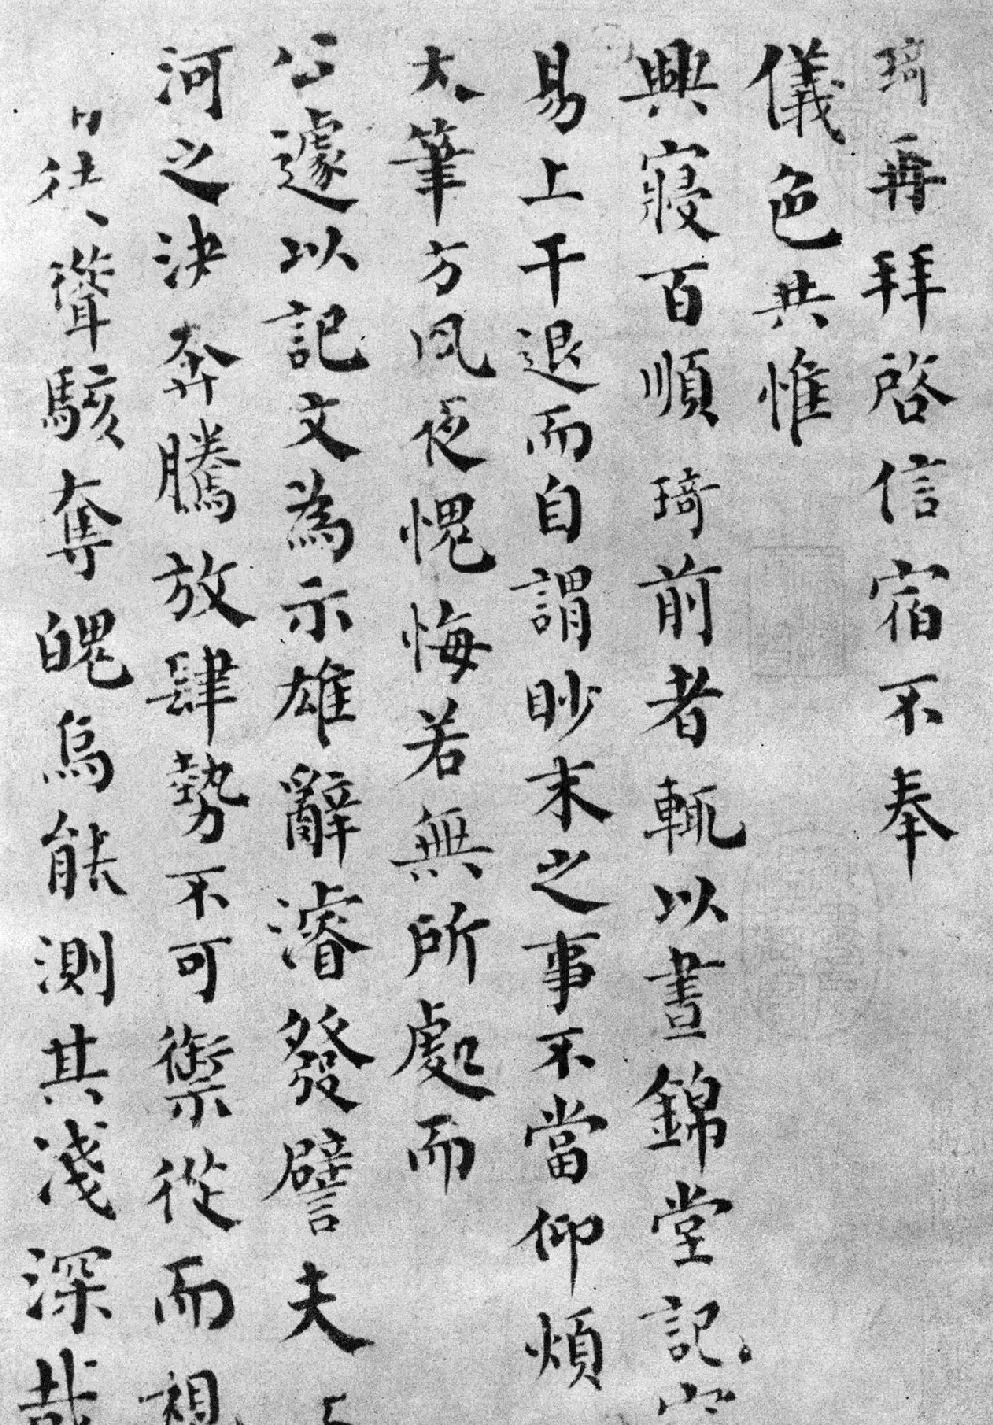 琦再拜啓信宿不奉
儀色共惟
興寢百順琦前者輒以晝錦堂記
易上干退而自謂眇末之事不當仰煩
大筆方夙夜愧悔若無所處而
公遽以記文為示雄辭濬發譬夫
河之決奔騰放肆勢不可禦從而視
徒聳駭奪魄烏能測其淺深哉